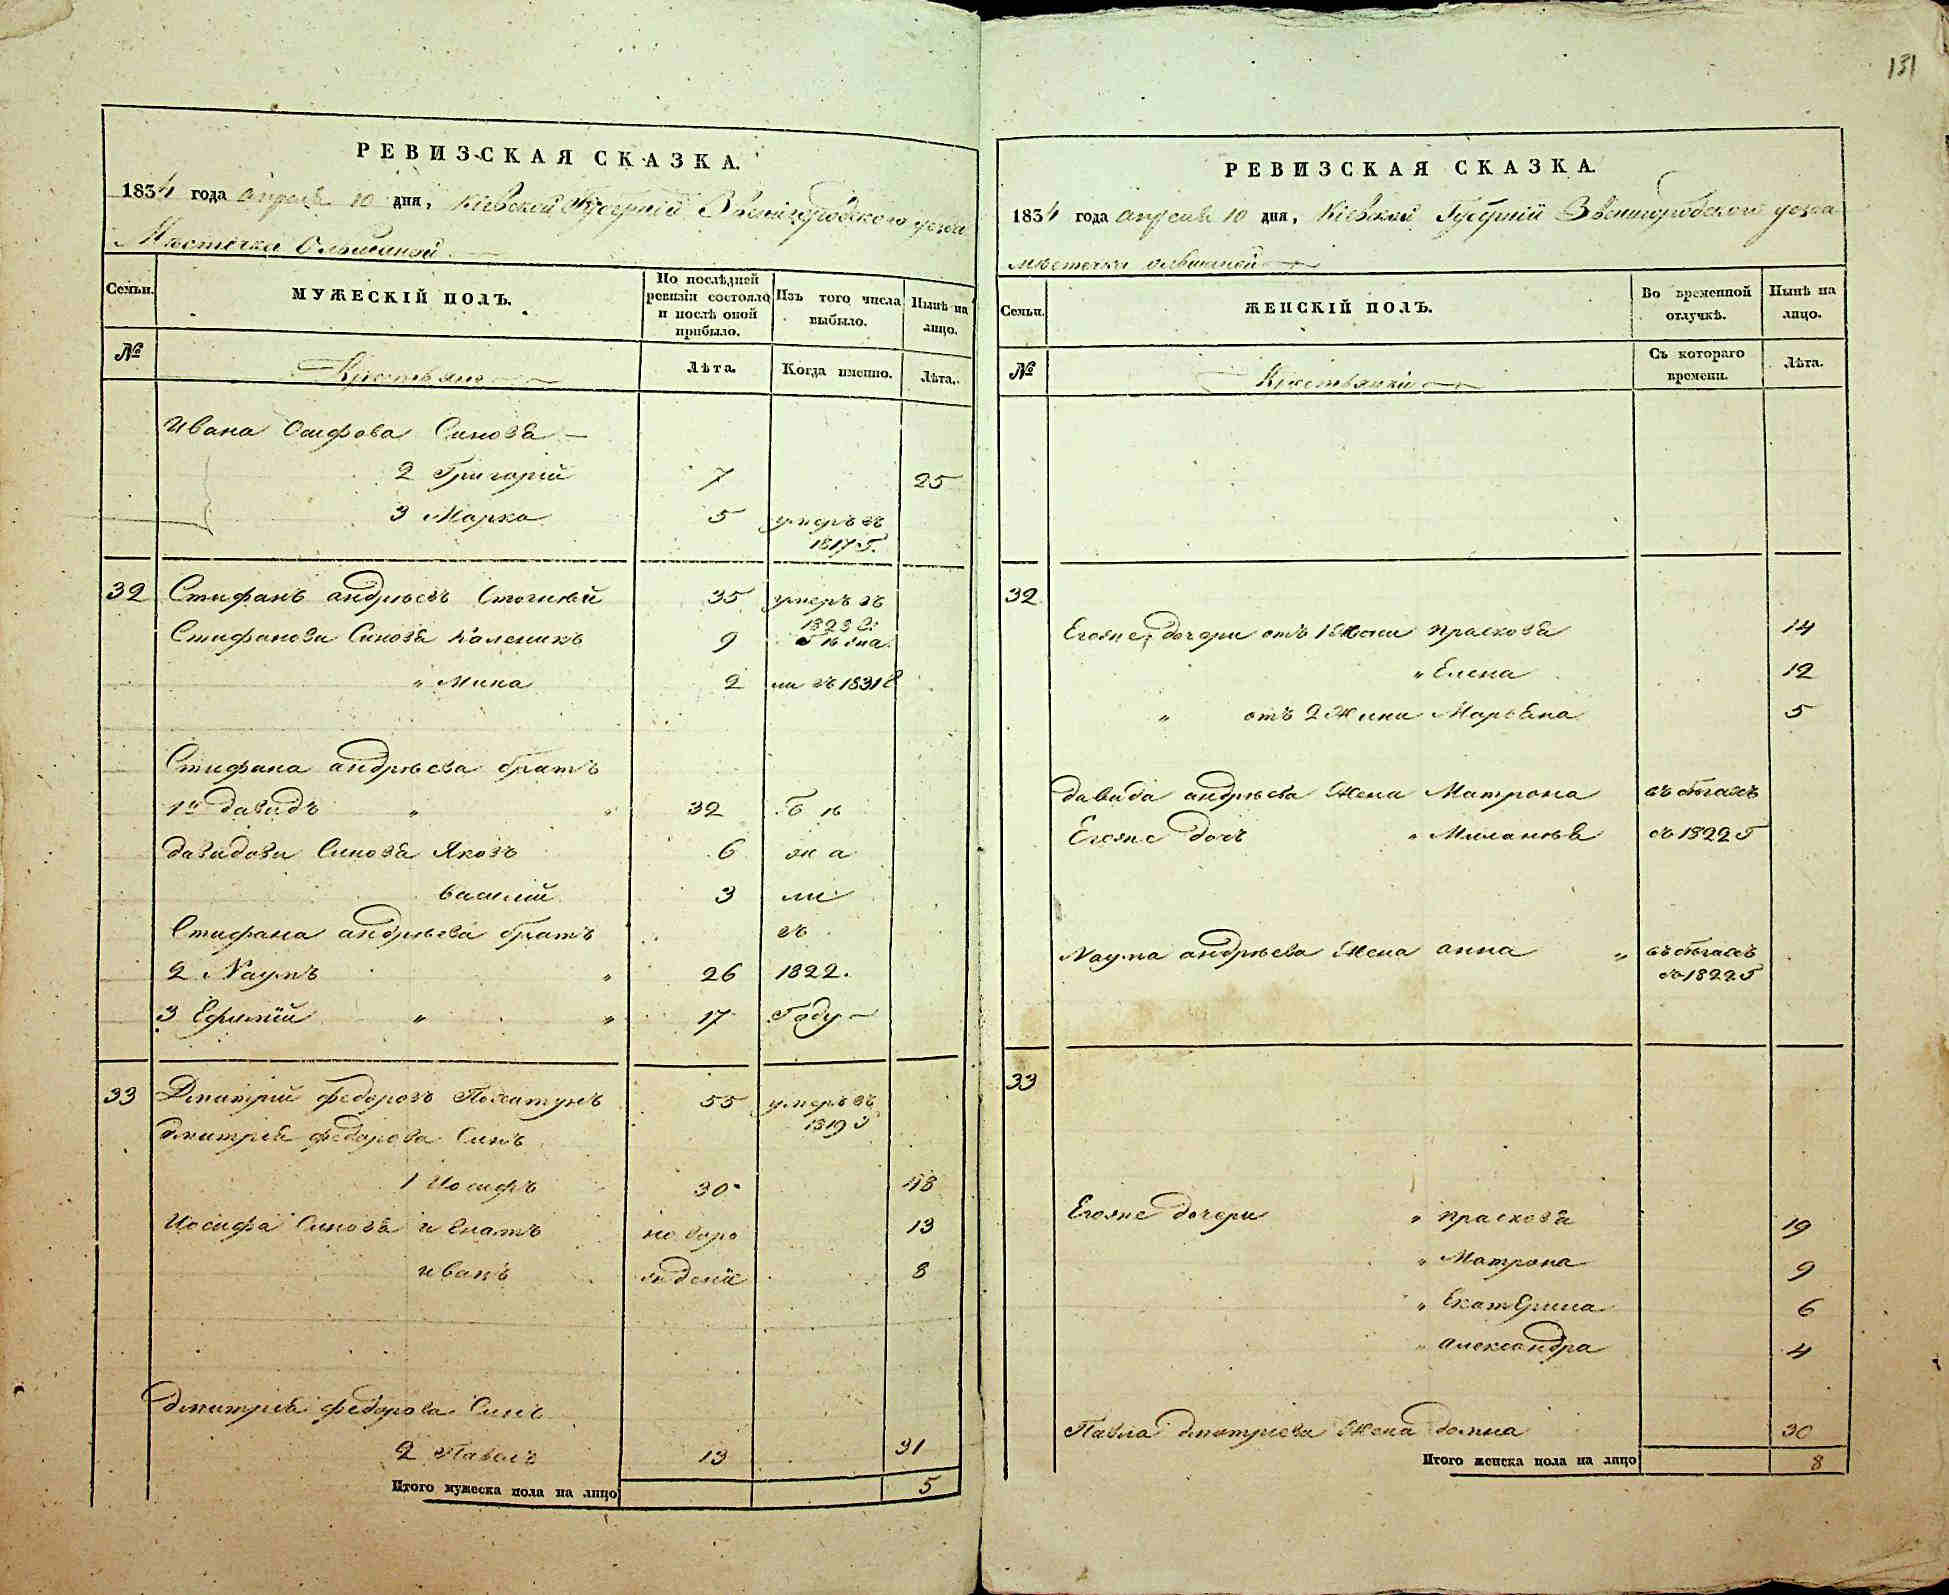 131
РЕВИЗСКАЯ СКАЗКА.
1834 года апреля 10 дня, Кіевской Губерніи Звенигородского уезда
Местечка Ольшаной
Семьи.
МУЖЕСКІЙ ПОЛЪ.
По послѣдней ревизіи состояло и послѣ оной прибыло.
Изъ того числа выбыло.
Нынѣ на лицо.
№
Крестьяне
Лѣта.
Когда именно.
Лѣта.
Ивана Осифова Синовя
2 Григорій 7 25
3 Марко 5 умеръ въ
1817 Г.
32 Стифанъ андрѣевъ 35 умеръ въ
Стифанови Синовя Каленикъ 9
" Мина 2 ли въ 1831
Стифана андрѣева братъ
1й давидъ " " 32 Б ѣ
давидови Синовя Яковъ 6 ж а
василій 3 ли
Стифана андрѣева братъ въ
2 Наумъ " 26 1822.
3 Ефимій " " 17 Году
33 Дмитрій федоровъ 55 умеръ въ
1819
дмитрія федорова Синъ
1 Иосифъ 30 48
Иосифа Синовя игнатъ новоро 13
иванъ жденіе 8
дмитрія федорова Синъ
2 Павелъ 13 31
Итого мужеска пола на лицо 5
РЕВИЗСКАЯ СКАЗКА.
1834 года апреля 10 дня, Кіевской Губерніи Звенигородского уезда
местечка олвшаной
Семьи.
ЖЕНСКІЙ ПОЛЪ.
Во временной отлучкѣ.
Нынѣ на лицо.
№
Крестьянки
Съ котораго времени.
Лѣта.
32
Егоже дочери отъ 1 Жони прасковя 14
" Елена 12
" отъ 2 Жини Марьяна 5
давида андрѣева Жена Матрона въ бѣгахъ
Егоже дочъ " Миланія съ 1822 Г
Наума андрѣева Жена анна " въ бѣгахъ
съ 1822 Г
33
Егоже дочери " прасковя 19
" Матрона 9
" Екатерина 6
" александра 4
Павла дмитріева Жена домна 30
Итого женска пола на лицо 8